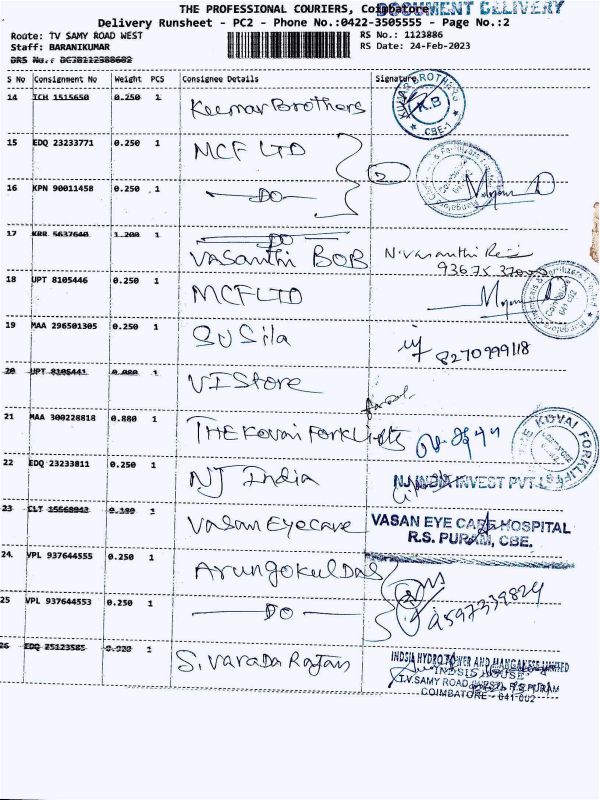 THE PROFESSIONAL COURIERS, Coimbatore
DOCUMENT DELIVERY
Delivery Runsheet - PC2 - Phone No.:0422-3505555 - Page No.:2
Route: TV SAMY ROAD WEST
RS No.: 1123886
Staff: BARANIKUMAR
RS Date: 24-Feb-2023
DRS No.:
S No Consignment No Weight PCS Consignee Details Signature
14 ICH 1515650 0.250 1 Keemar Brothers
KUMAR BROTHERS K.B CBE-1
15 EDQ 23233771 0.250 1 MCF LTD
2
16 KPN 90011458 0.250 1 DO
17 KRR 5637640 1.200 1 DO
Vasanthi BOB
18 UPT 8105446 0.250 1 MCF LTD
19 MAA 296501305 0.250 1 SUSila
8270999118
20 UPT 8105441 0.080 1 VI Store
21 MAA 300228818 0.880 1 THE Kovai Forklifts
THE KOVAI FORKLIFT
22 EDQ 23233811 0.250 1 NJ India
NJ INDIA INVEST PVT
23 CLT 15568943 1 Vasan Eyecare
VASAN EYE CARE HOSPITAL
R.S. PURAM, CBE.
24 VPL 937644555 0.250 1 Arungokul Das
25 VPL 937644553 0.250 1 DO
26 EDQ 25123585 0.020 1 S. Varada Rajan
INDSIL HYDRO POWER AND MANGANESE LIMITED
INDSIL HOUSE
T.V. SAMY ROAD (WEST), R.S. PURAM
COIMBATORE - 641 002